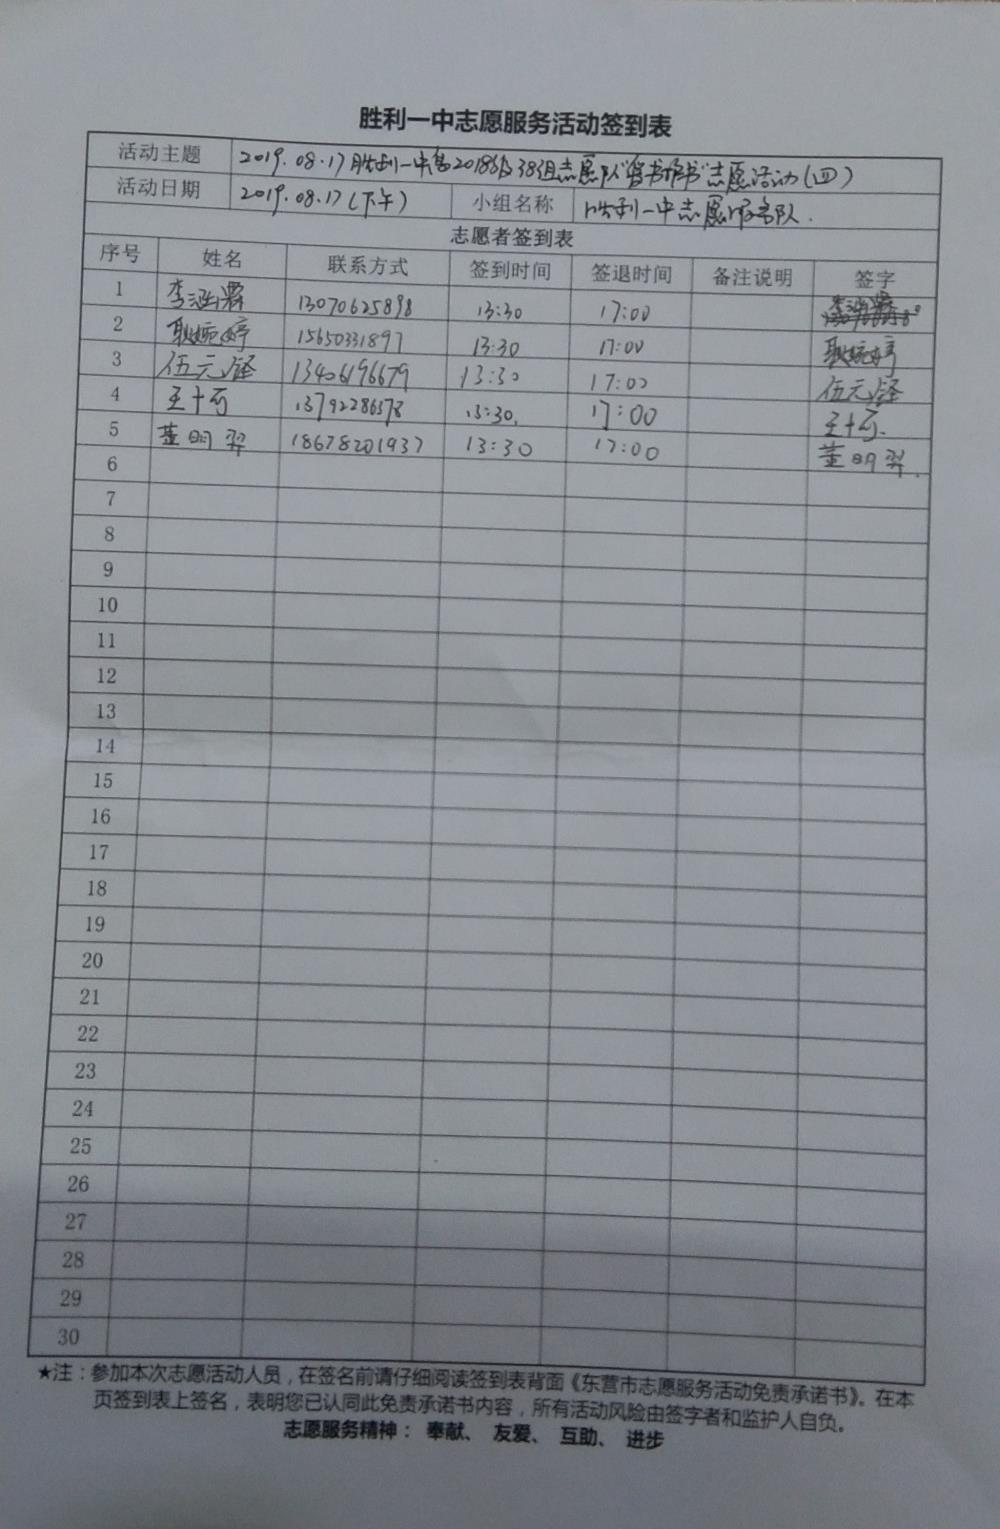 胜利一中志愿服务活动签到表
活动主题 2019.08.17胜利一中 2018级38组志愿队"图书"志愿活动(四)
活动日期 2019.08.17(下午) 小组名称 胜利一中志愿服务队.
志愿者签到表
序号 姓名 联系方式 签到时间 签退时间 备注说明 签字
1 李涵霖 13070625898 13:30 17:00 李涵霖
2 耿婉婷 15650331897 13:30 17:00 耿婉婷
3 伍元 13406196679 13:30 17:00 伍元
4 13792286578 13:30. 17:00
5 董明羿 18678201937 13:30 17:00 董明羿.
6
7
8
9
10
11
12
13
14
15
16
17
18
19
20
21
22
23
24
25
26
27
28
29
30
★注：参加本次志愿活动人员，在签名前请仔细阅读签到表背面《东营市志愿服务活动免责承诺书》。在本
页签到表上签名，表明您已认同此免责承诺书内容，所有活动风险由签字者和监护人自负。
志愿服务精神： 奉献、 友爱、 互助、 进步